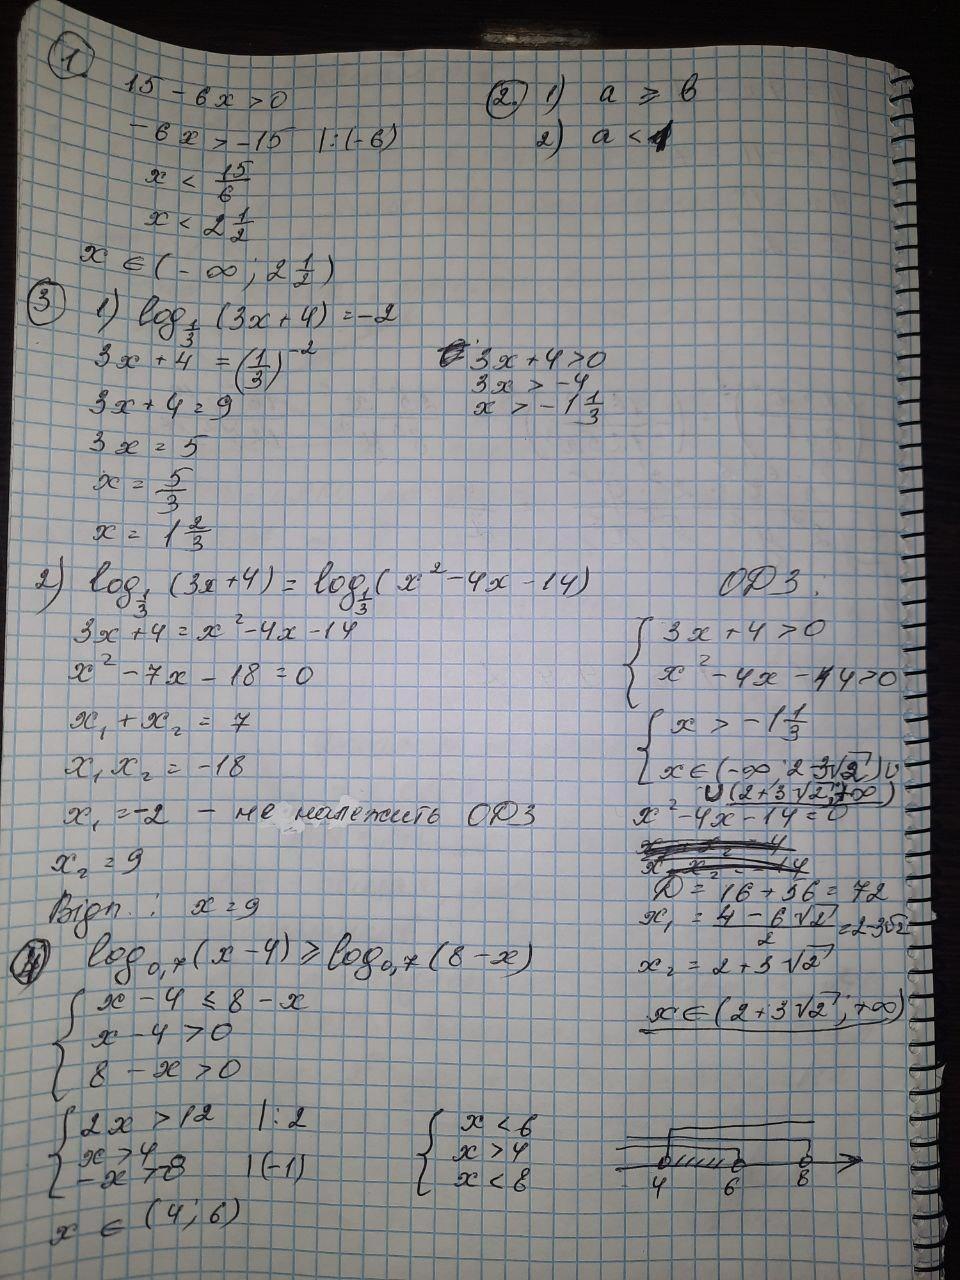 1.
15 - 6x > 0
-6x > -15 |:(-6)
x < 15/6
x < 2 1/2
x ∈ (-∞; 2 1/2)
2. 1) a ≥ b
2) a < 1
3 1) log_{1/3} (3x+4) = -2
3x + 4 = (1/3)^{-2}
3x + 4 = 9
3x = 5
x = 5/3
x = 1 2/3
3x + 4 > 0
3x > -4
x > -1 1/3
2) log_{1/3} (3x+4) = log_{1/3} (x² - 4x - 14)
3x + 4 = x² - 4x - 14
x² - 7x - 18 = 0
x₁ + x₂ = 7
x₁ x₂ = -18
x₁ = -2 - не належить ОДЗ
x₂ = 9
Відп.: x = 9
ОДЗ:
{ 3x + 4 > 0
x² - 4x - 14 > 0
{ x > -1 1/3
x ∈ (-∞; 2-3√2) ∪
∪ (2+3√2; +∞)
x² - 4x - 14 = 0
x₁ + x₂ = 4
x₁ x₂ = -14
D = 16 + 56 = 72
x₁ = (4 - 6√2)/2 = 2-3√2
x₂ = 2 + 3√2
x ∈ (2+3√2; +∞)
4 log_{0,7} (x - 4) ≥ log_{0,7} (8 - x)
{ x - 4 ≤ 8 - x
x - 4 > 0
8 - x > 0
{ 2x > 12 |:2
x > 4
-x > 8 |(-1)
{ x < 6
x > 4
x < 8
4 6 8
x ∈ (4; 6)